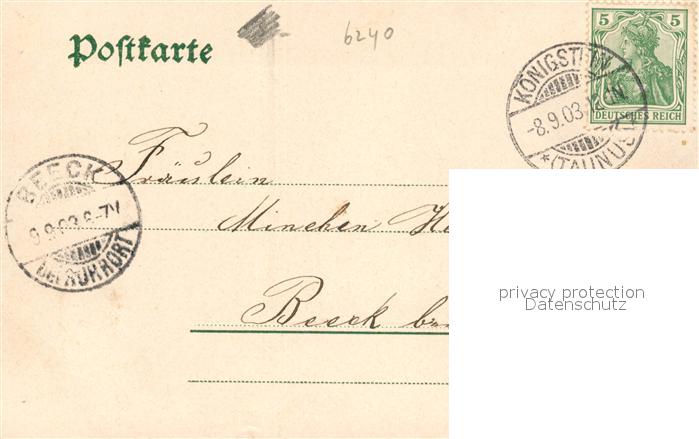 6240
Postkarte
5 5
DEUTSCHES REICH
KÖNIGSTEIN
-8.9.03
*(TAUNUS)*
BEECK
9.9.03.6-7V
bei RUHRORT
Fräulein
Minchen
Beeck
privacy protection
Datenschutz